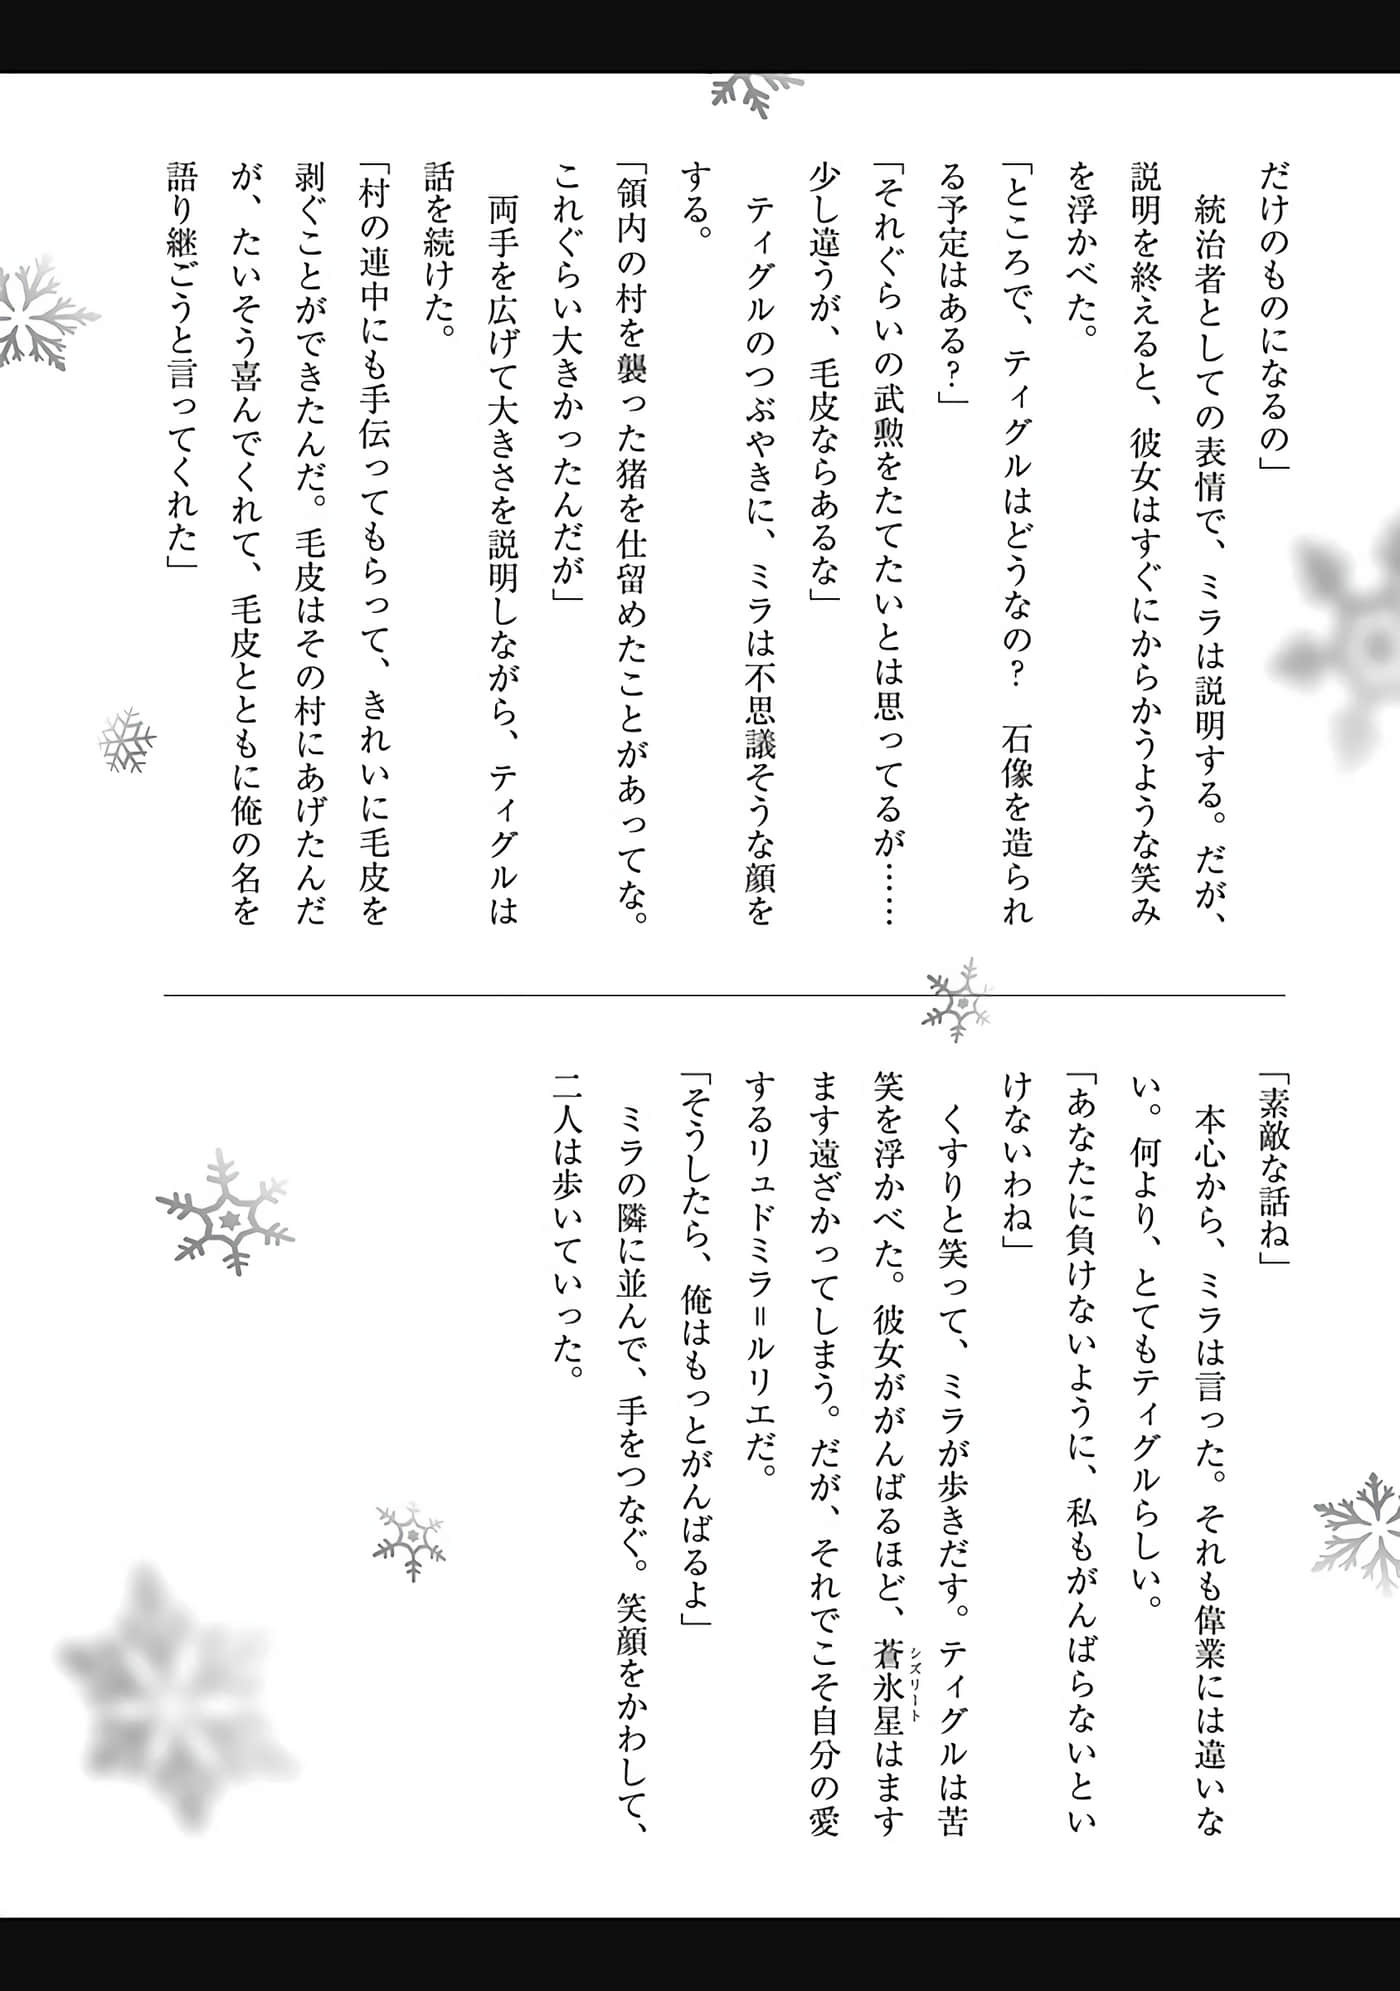 だけのものになるの」
　統治者としての表情で、ミラは説明する。だが、
説明を終えると、彼女はすぐにからかうような笑み
を浮かべた。
「ところで、ティグルはどうなの？　石像を造られ
る予定はある？」
「それぐらいの武勲をたてたいとは思ってるが……
少し違うが、毛皮ならあるな」
　ティグルのつぶやきに、ミラは不思議そうな顔を
する。
「領内の村を襲った猪を仕留めたことがあってな。
これぐらい大きかったんだが」
　両手を広げて大きさを説明しながら、ティグルは
話を続けた。
「村の連中にも手伝ってもらって、きれいに毛皮を
剥ぐことができたんだ。毛皮はその村にあげたんだ
が、たいそう喜んでくれて、毛皮とともに俺の名を
語り継ごうと言ってくれた」
「素敵な話ね」
　本心から、ミラは言った。それも偉業には違いな
い。何より、とてもティグルらしい。
「あなたに負けないように、私もがんばらないとい
けないわね」
　くすりと笑って、ミラが歩きだす。ティグルは苦
笑を浮かべた。彼女ががんばるほど、蒼氷星はます
シズリート
ます遠ざかってしまう。だが、それでこそ自分の愛
するリュドミラ＝ルリエだ。
「そうしたら、俺はもっとがんばるよ」
　ミラの隣に並んで、手をつなぐ。笑顔をかわして、
二人は歩いていった。